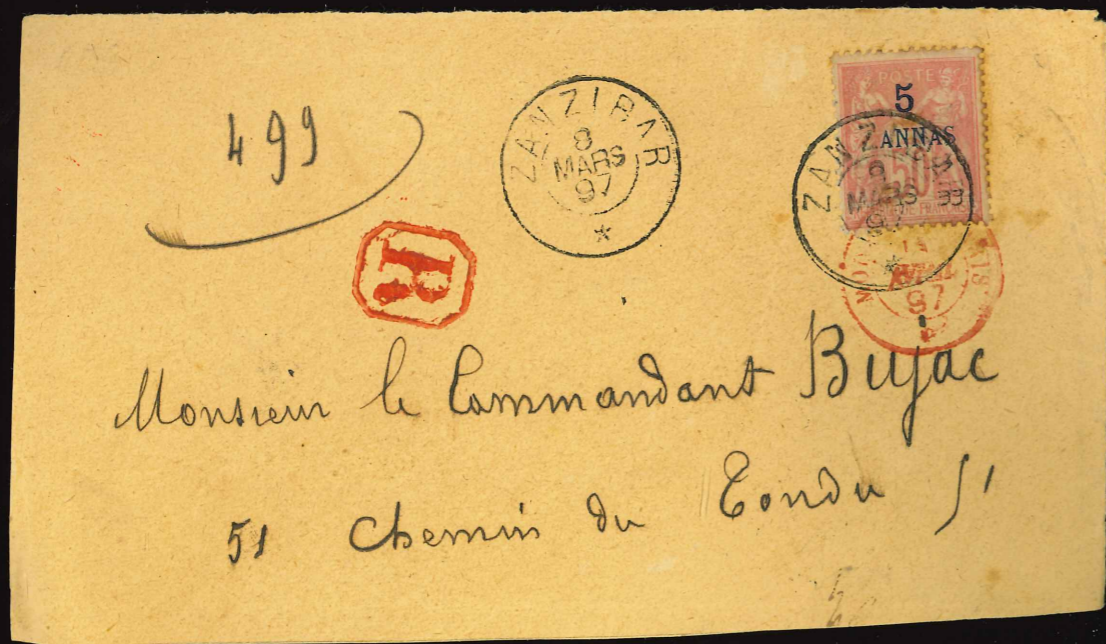 499
ZANZIBAR
8
MARS
97
*
R
POSTE
5
ANNAS
50
ZANZIBAR
8
MARS
97
*
97
Monsieur le Commandant Bujac
51 Chemin du Tondu 51